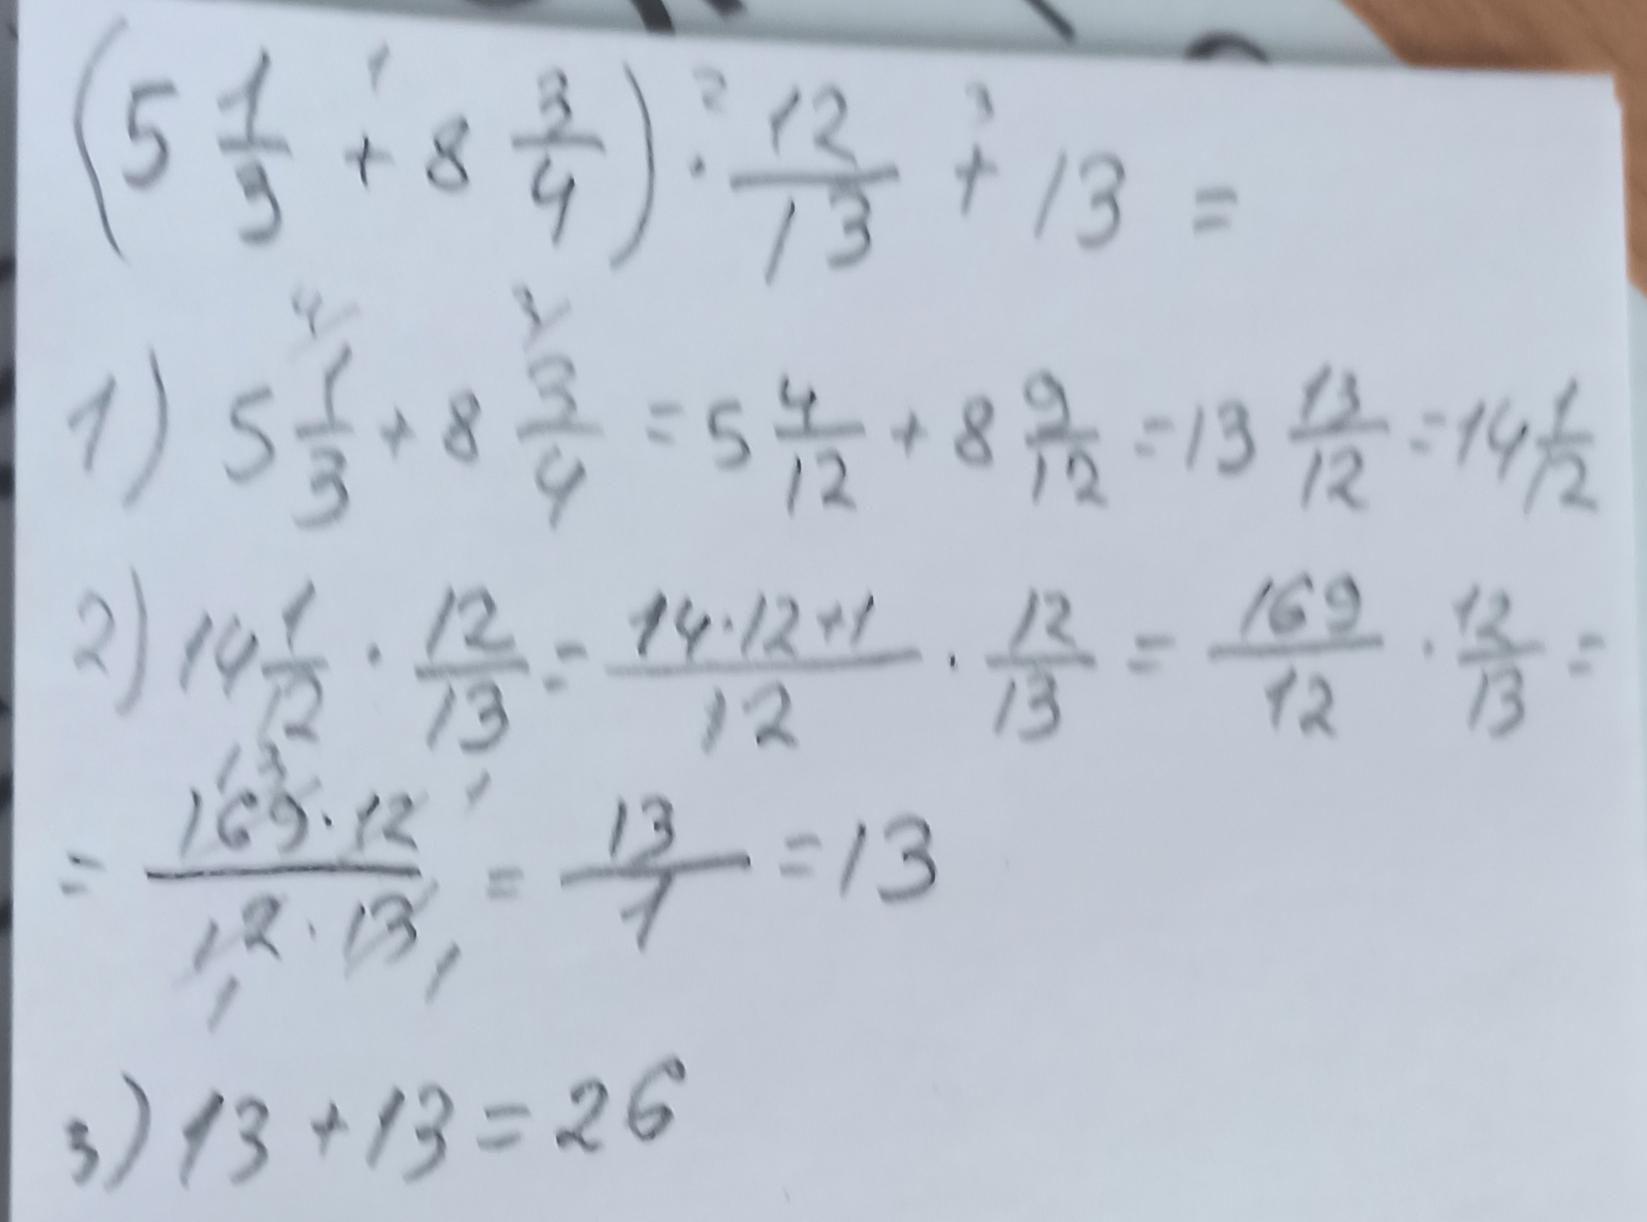 (5 1/3 + 8 3/4) · 12/13 + 13 =
1) 5 1/3 + 8 3/4 = 5 4/12 + 8 9/12 = 13 13/12 = 14 1/12
2) 14 1/12 · 12/13 = (14·12+1)/12 · 12/13 = 169/12 · 12/13 =
= (169·12)/(12·13) = 13/1 = 13
3) 13 + 13 = 26